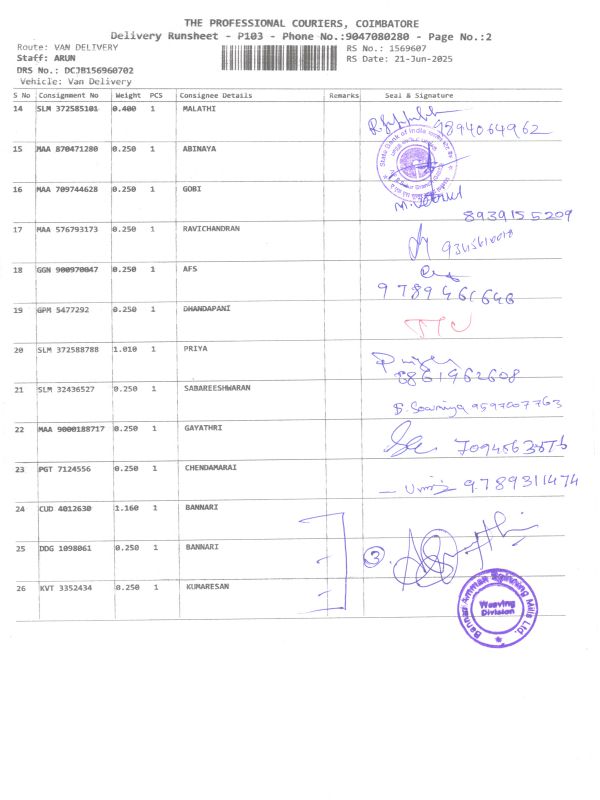 THE PROFESSIONAL COURIERS, COIMBATORE
Delivery Runsheet - P103 - Phone No.:9047080280 - Page No.:2
Route: VAN DELIVERY RS No.: 1569607
Staff: ARUN RS Date: 21-Jun-2025
DRS No.: DCJB156960702
Vehicle: Van Delivery
S No Consignment No Weight PCS Consignee Details Remarks Seal & Signature
14 SLM 372585101 0.400 1 MALATHI
9894064962
15 MAA 870471280 0.250 1 ABINAYA
State Bank of India
16 MAA 709744628 0.250 1 GOBI
8939155209
17 MAA 576793173 0.250 1 RAVICHANDRAN
18 GGN 900970047 0.250 1 AFS
9789461646
19 GPM 5477292 0.250 1 DHANDAPANI
20 SLM 372588788 1.010 1 PRIYA
Priya
8861962608
21 SLM 32436527 0.250 1 SABAREESHWARAN
S. Sowmiya 9597007763
22 MAA 9000188717 0.250 1 GAYATHRI
23 PGT 7124556 0.250 1 CHENDAMARAI
9789311474
24 CUD 4012630 1.160 1 BANNARI
25 DDG 1098061 0.250 1 BANNARI
3
26 KVT 3352434 0.250 1 KUMARESAN
Bannari Amman Spinning Mills Ltd.
Weaving
Division